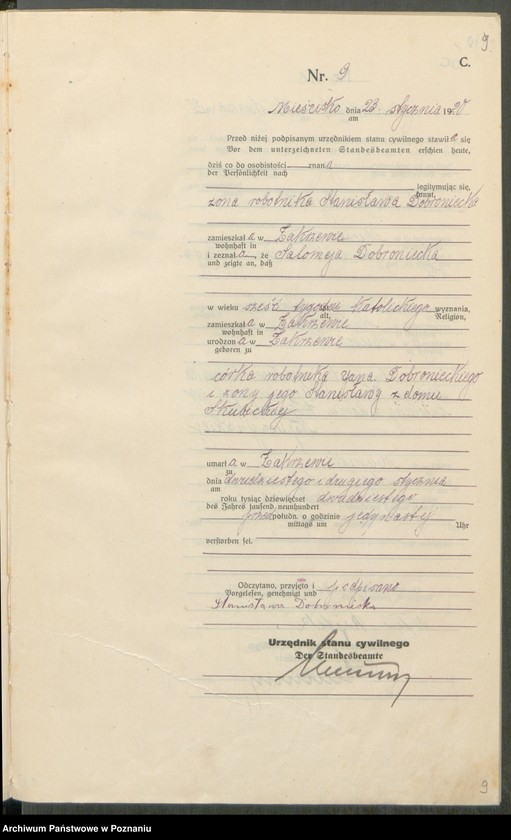 9
C.
Nr. 9
Mieścisko dnia 23. stycznia 1920
am
Przed niżej podpisanym urzędnikiem stanu cywilnego stawiła się
Vor dem unterzeichneten Standesbeamten erschien heute,
dziś co do osobistości znana
der Persönlichkeit nach
legitymując się,
kannt,
żona robotnika Stanisława Dobroniecka
zamieszkała w Zakrzewie
wohnhaft in
i zeznała, że Salomeja Dobroniecka
und zeigte an, daß
w wieku sześć tygodni katolickiego wyznania,
alt, Religion,
zamieszkała w Zakrzewie
wohnhaft in
urodzona w Zakrzewie
geboren zu
córka robotnika Jana Dobronieckiego
i żony jego Stanisławy z domu
Skubickiej
umarła w Zakrzewie
zu
dnia dwudziestego i drugiego stycznia
am
roku tysiąc dziewięćset dwudziestego
des Jahres tausend neunhundert
przed połudn. o godzinie jedynastej
mittags um Uhr
verstorben sei.
Odczytano, przyjęto i podpisano
Vorgelesen, genehmigt und
Stanisława Dobroniecka
Urzędnik stanu cywilnego
Der Standesbeamte
9
Archiwum Państwowe w Poznaniu